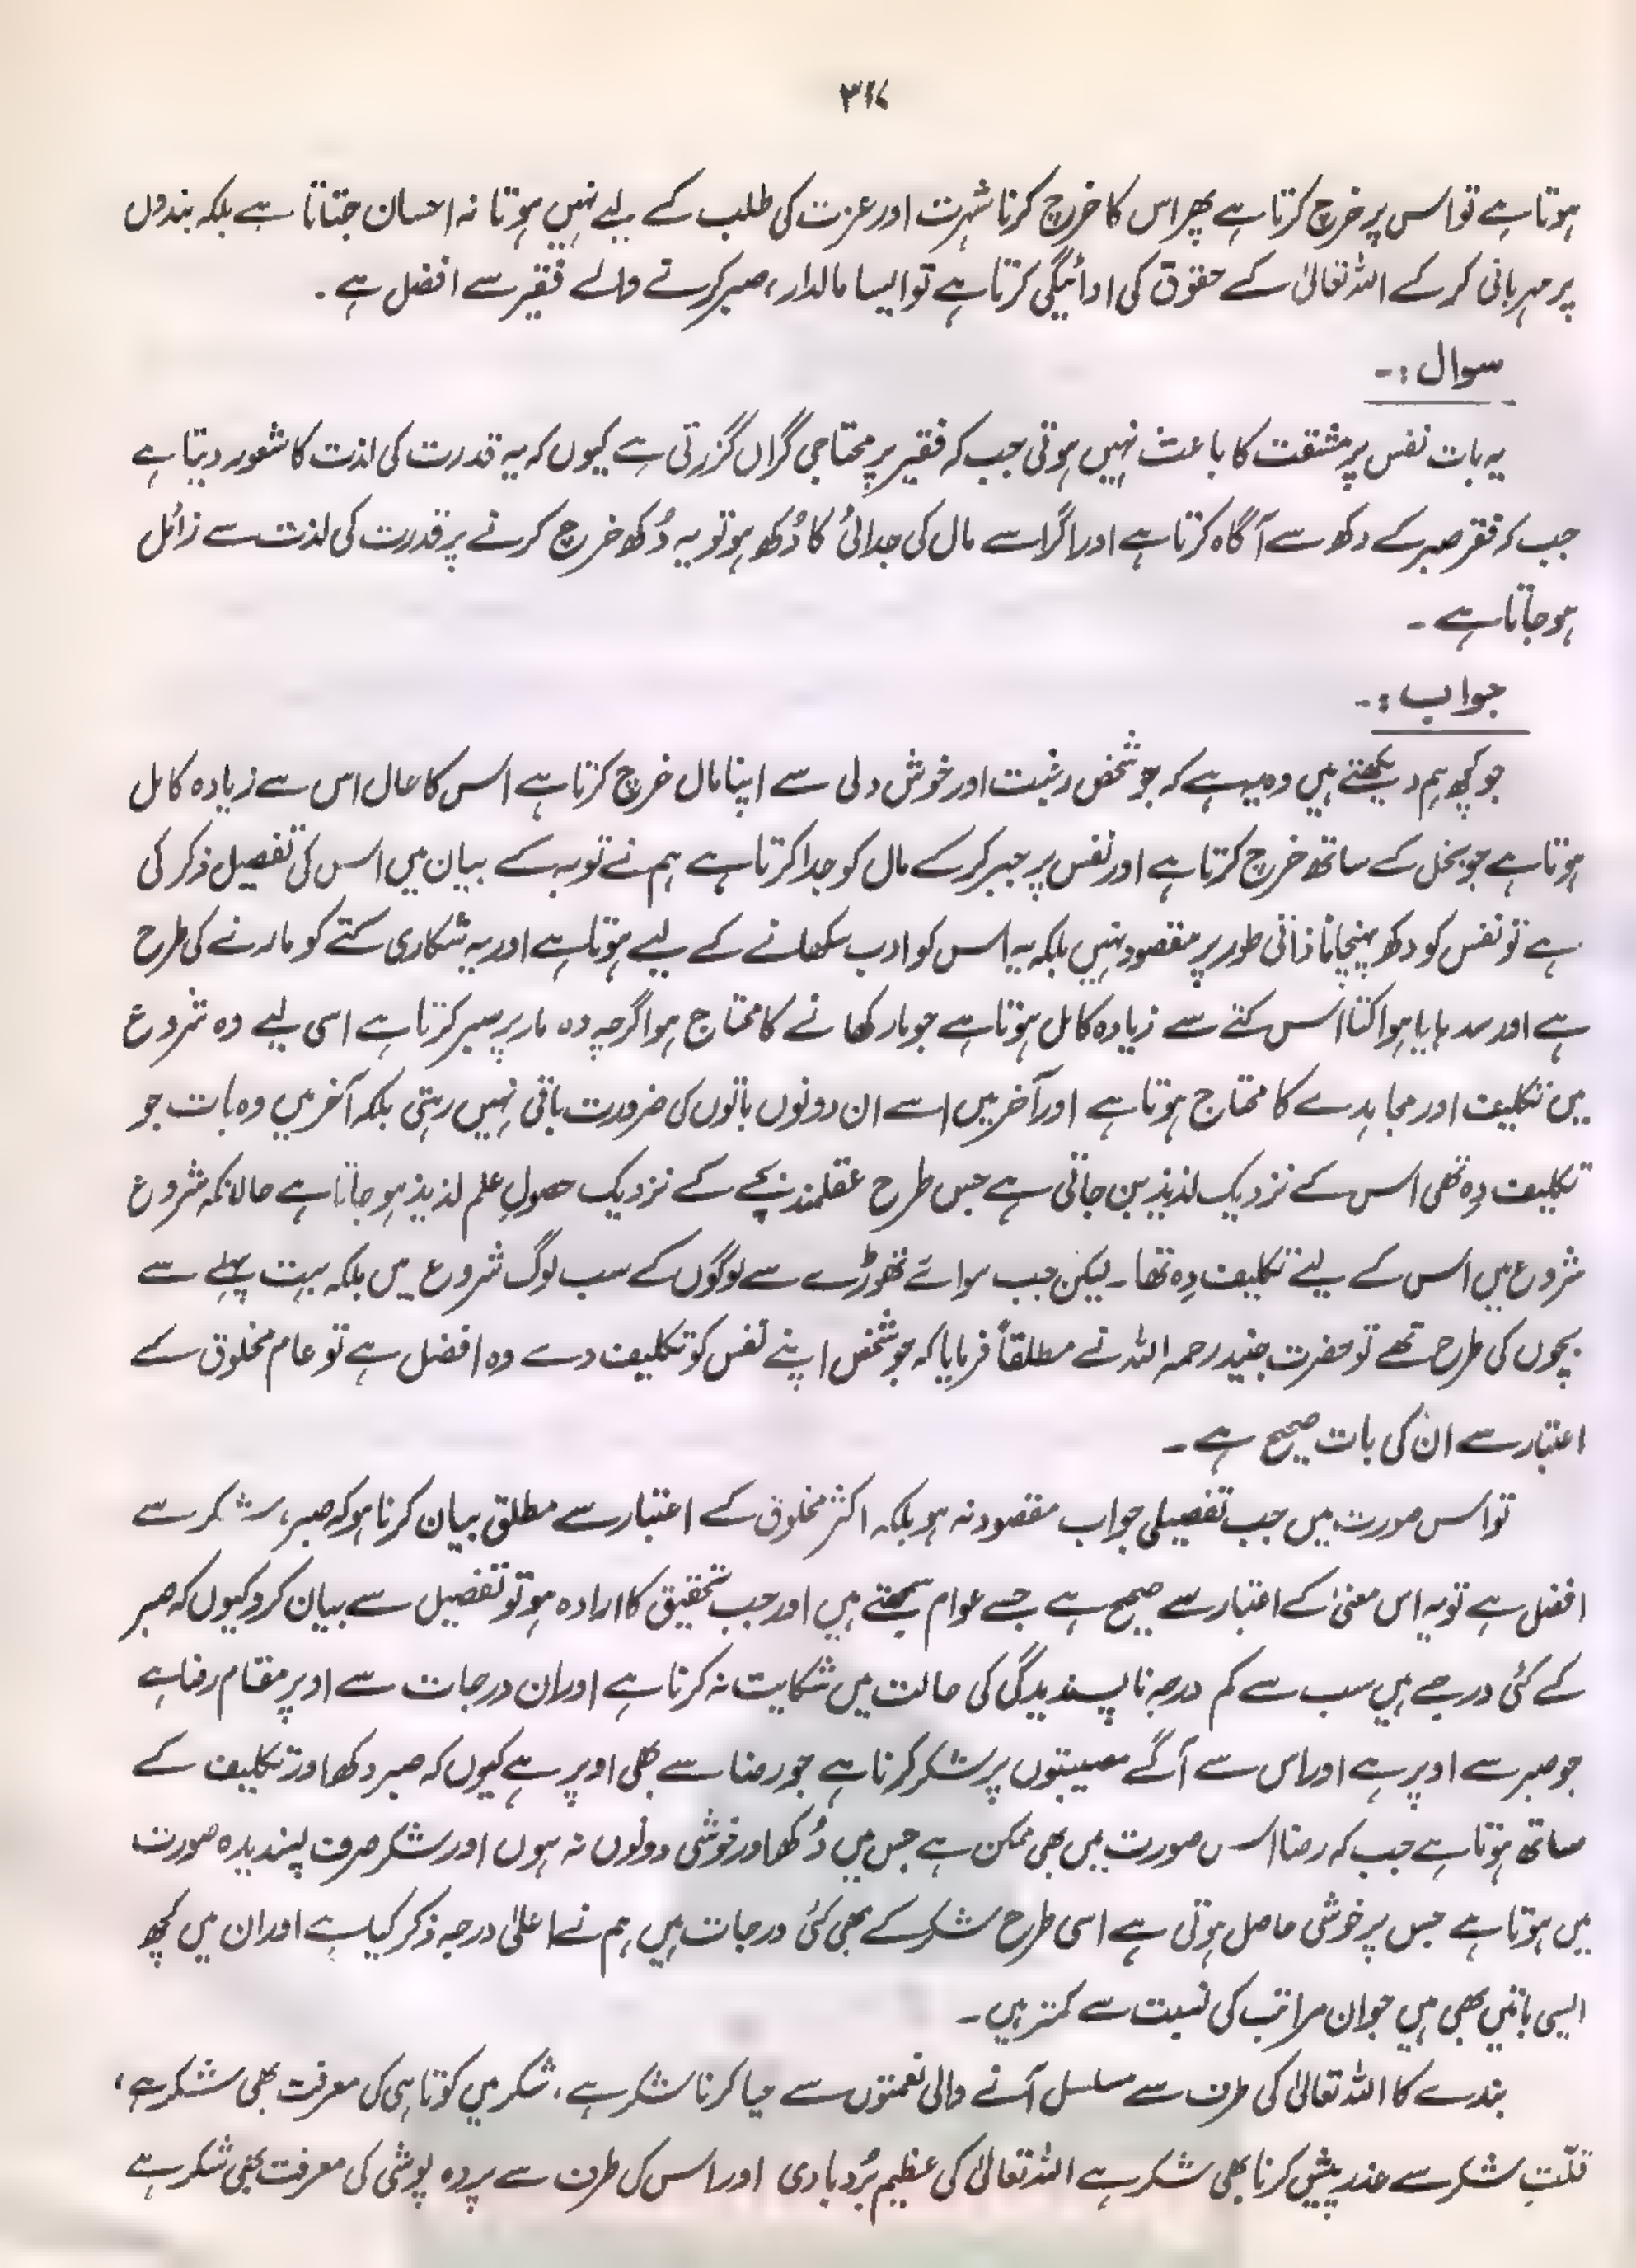 ۳۱۷
ہوتا ہے تو اس پر خرچ کرتا ہے پھر اس کا خرچ کرنا شہرت اور عزت کی طلب کے لیے نہیں ہوتا نہ احسان جتاتا ہے بلکہ بندوں
پر مہربانی کر کے اللہ تعالیٰ کے حقوق کی ادائیگی کرتا ہے تو ایسا مالدار، صبر کرنے والے فقیر سے افضل ہے ۔
سوال :-
یہ بات نفس پر مشقت کا باعث نہیں ہوتی جب کہ فقیر پر محتاجی گراں گزرتی ہے کیوں کہ یہ قدرت کی لذت کا شعور دیتا ہے
جب کہ فقر صبر کے دکھ سے آگاہ کرتا ہے اور اگر اسے مال کی جدائی کا دُکھ ہو تو یہ دُکھ خرچ کرنے پر قدرت کی لذت سے زائل
ہو جاتا ہے ۔
جواب :-
جو کچھ ہم دیکھتے ہیں وہ یہ ہے کہ جو شخص رغبت اور خوش دلی سے اپنا مال خرچ کرتا ہے اس کا حال اس سے زیادہ کامل
ہوتا ہے جو بخل کے ساتھ خرچ کرتا ہے اور نفس پر جبر کر کے مال کو جدا کرتا ہے ہم نے توبہ کے بیان میں اس کی تفصیل ذکر کی
ہے تو نفس کو دکھ پہنچانا ذاتی طور پر مقصود نہیں بلکہ یہ اس کو ادب سکھانے کے لیے ہوتا ہے اور یہ شکاری کتے کو مارنے کی طرح
ہے اور سدہایا ہوا کتا اس کتے سے زیادہ کامل ہوتا ہے جو مار کھانے کا محتاج ہو اگرچہ وہ مار پر صبر کرتا ہے اسی لیے وہ شروع
میں تکلیف اور مجاہدے کا محتاج ہوتا ہے اور آخر میں اسے ان دونوں باتوں کی ضرورت باقی نہیں رہتی بلکہ آخر میں وہ بات جو
تکلیف دِہ تھی اس کے نزدیک لذیذ بن جاتی ہے جس طرح عقلمند بچے کے نزدیک حصولِ علم لذیذ ہو جاتا ہے حالانکہ شروع
شروع میں اس کے لیے تکلیف دِہ تھا۔ لیکن جب سوائے تھوڑے سے لوگوں کے سب لوگ شروع میں بلکہ بہت پہلے سے
بچوں کی طرح تھے تو حضرت جنید رحمہ اللہ نے مطلقاً فرمایا کہ جو شخص اپنے نفس کو تکلیف دے وہ افضل ہے تو عام مخلوق کے
اعتبار سے ان کی بات صحیح ہے ۔
تو اس صورت میں جب تفصیلی جواب مقصود نہ ہو بلکہ اکثر مخلوق کے اعتبار سے مطلق بیان کرنا ہو کہ صبر، شکر سے
افضل ہے تو یہ اس معنیٰ کے اعتبار سے صحیح ہے جسے عوام سمجھتے ہیں اور جب تحقیق کا ارادہ ہو تو تفصیل سے بیان کرو کیوں کہ صبر
کے کئی درجے ہیں سب سے کم درجہ ناپسندیدگی کی حالت میں شکایت نہ کرنا ہے اور ان درجات سے اوپر مقام رضا ہے
جو صبر سے اوپر ہے اور اس سے آگے مصیبتوں پر شکر کرنا ہے جو رضا سے بھی اوپر ہے کیوں کہ صبر دکھ اور تکلیف کے
ساتھ ہوتا ہے جب کہ رضا اس صورت میں بھی ممکن ہے جس میں دُکھ اور خوشی دونوں نہ ہوں اور شکر صرف پسندیدہ صورت
میں ہوتا ہے جس پر خوشی حاصل ہوتی ہے اسی طرح شکر کے بھی کئی درجات ہیں ہم نے اعلیٰ درجہ ذکر کیا ہے اور ان میں کچھ
ایسی باتیں بھی ہیں جو ان مراتب کی نسبت سے کمتر ہیں ۔
بندے کا اللہ تعالیٰ کی طرف سے مسلسل آنے والی نعمتوں سے حیا کرنا شکر ہے، شکر میں کوتاہی کی معرفت بھی شکر ہے،
قلّتِ شکر سے عذر پیش کرنا بھی شکر ہے اللہ تعالیٰ کی عظیم بُردباری اور اس کی طرف سے پردہ پوشی کی معرفت بھی شکر ہے